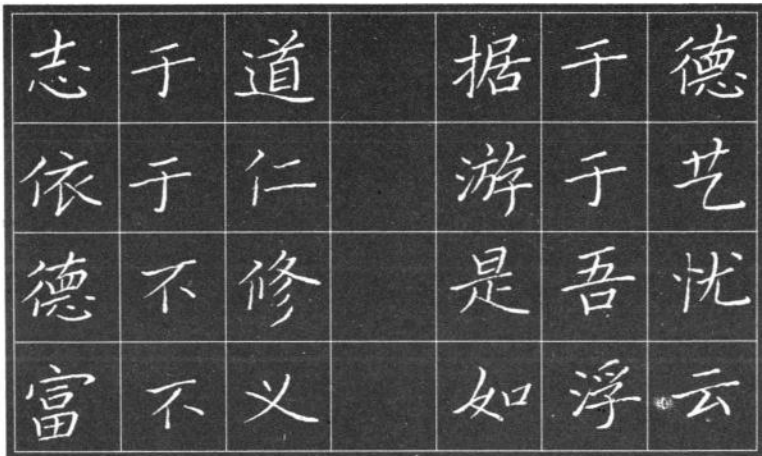 志于道 据于德
依于仁 游于艺
德不修 是吾忧
富不义 如浮云